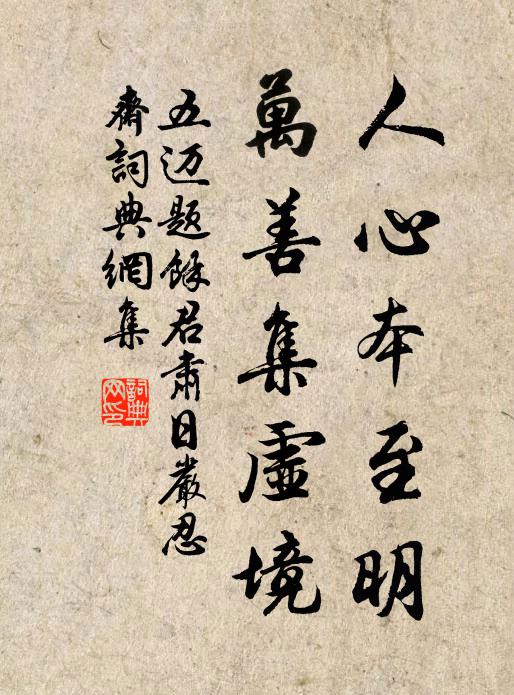 人心本至明
萬善集虛境
五迈題餘君肅日嚴忍
齋詞典網集
詞典網印